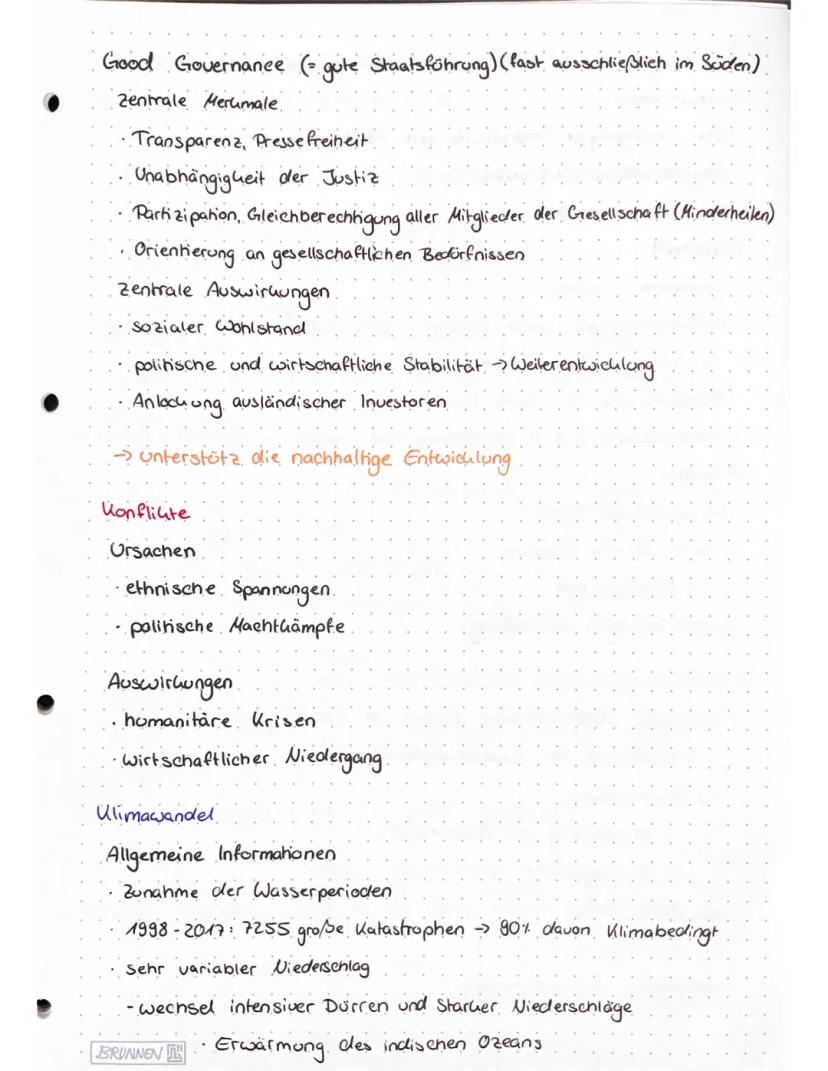 Good Governance (= gute Staatsführung) (fast ausschließlich im Süden)
Zentrale Merkmale
· Transparenz, Pressefreiheit
· Unabhängigkeit der Justiz
· Partizipation, Gleichberechtigung aller Mitglieder der Gesellschaft (Minderheiten)
· Orientierung an gesellschaftlichen Bedürfnissen
Zentrale Auswirkungen
· sozialer Wohlstand
· politische und wirtschaftliche Stabilität → Weiterentwicklung
· Anlockung ausländischer Investoren
→ unterstütz die nachhaltige Entwicklung
Konflikte
Ursachen
· ethnische Spannungen
· politische Machtkämpfe
Auswirkungen
· humanitäre Krisen
· wirtschaftlicher Niedergang
Klimawandel
Allgemeine Informationen
· Zunahme der Wasserperioden
· 1998 - 2017: 7255 große Katastrophen → 90% davon Klimabedingt
· sehr variabler Niederschlag
- wechsel intensiver Dürren und Starker Niederschläge
· Erwärmung des indischen Ozeans
BRUNNEN